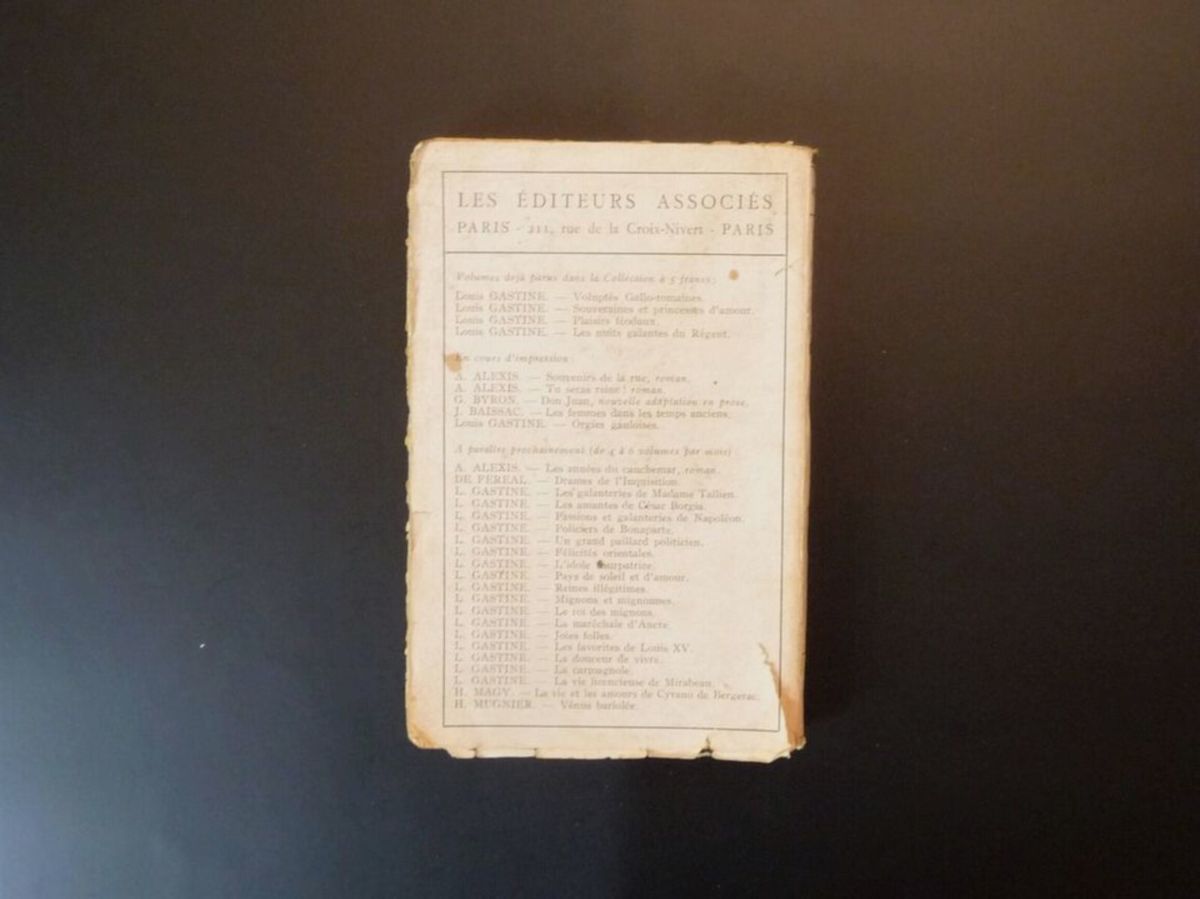 LES ÉDITEURS ASSOCIÉS
PARIS - 211, rue de la Croix-Nivert - PARIS
Volumes déjà parus dans la Collection à 5 francs :
Louis GASTINE. — Voluptés Gallo-romaines.
Louis GASTINE. — Souveraines et princesses d'amour.
Louis GASTINE. — Plaisirs féodaux.
Louis GASTINE. — Les nuits galantes du Régent.
En cours d'impression :
A. ALEXIS. — Souvenirs de la rue, roman.
A. ALEXIS. — Tu seras reine ! roman.
G. BYRON. — Don Juan, nouvelle adaptation en prose.
J. BAISSAC. — Les femmes dans les temps anciens.
Louis GASTINE. — Orgies gauloises.
A paraître prochainement (de 4 à 6 volumes par mois)
A. ALEXIS. — Les années du cauchemar, roman.
DE FEREAL. — Drames de l'Inquisition.
L. GASTINE. — Les galanteries de Madame Tallien.
L. GASTINE. — Les amantes de César Borgia.
L. GASTINE. — Passions et galanteries de Napoléon.
L. GASTINE. — Policiers de Bonaparte.
L. GASTINE. — Un grand paillard politicien.
L. GASTINE. — Félicités orientales.
L. GASTINE. — L'idole usurpatrice.
L. GASTINE. — Pays de soleil et d'amour.
L. GASTINE. — Reines illégitimes.
L. GASTINE. — Mignons et mignonnes.
L. GASTINE. — Le roi des mignons.
L. GASTINE. — La maréchale d'Ancre.
L. GASTINE. — Joies folles.
L. GASTINE. — Les favorites de Louis XV.
L. GASTINE. — La douceur de vivre.
L. GASTINE. — La carmagnole.
L. GASTINE. — La vie licencieuse de Mirabeau.
H. MAGY. — La vie et les amours de Cyrano de Bergerac.
H. MUGNIER. — Vénus bariolée.